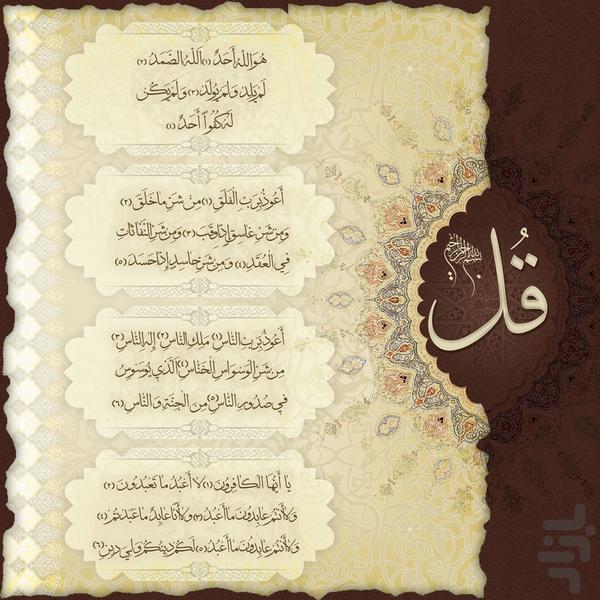 قُل
بسم الله الرحمن الرحیم
هُوَ اللهُ أَحَدٌ (۱) اَللهُ الصَّمَدُ (۲)
لَمْ یَلِدْ وَلَمْ یُولَدْ (۳) وَلَمْ یَکُنْ
لَهُ کُفُواً أَحَدٌ (٤)
أَعُوذُ بِرَبِّ الْفَلَقِ (۱) مِنْ شَرِّ مَا خَلَقَ (۲)
وَمِنْ شَرِّ غَاسِقٍ إِذَا وَقَبَ (۳) وَمِنْ شَرِّ النَّفَّاثَاتِ
فِي الْعُقَدِ (٤) وَمِنْ شَرِّ حَاسِدٍ إِذَا حَسَدَ (۵)
أَعُوذُ بِرَبِّ النَّاسِ (۱) مَلِكِ النَّاسِ (۲) إِلَهِ النَّاسِ (۳)
مِن شَرِّ الْوَسْوَاسِ الْخَنَّاسِ (٤) الَّذِي يُوَسْوِسُ
فِي صُدُورِ النَّاسِ (۵) مِنَ الْجِنَّةِ وَ النَّاسِ (٦)
يَا أَيُّهَا الْكَافِرُونَ (۱) لَا أَعْبُدُ مَا تَعْبُدُونَ (۲)
وَلَا أَنتُمْ عَابِدُونَ مَا أَعْبُدُ (۳) وَلَا أَنَا عَابِدٌ مَا عَبَدتُّمْ (٤)
وَلَا أَنتُمْ عَابِدُونَ مَا أَعْبُدُ (۵) لَكُمْ دِينُكُمْ وَلِيَ دِينِ (٦)
بازار